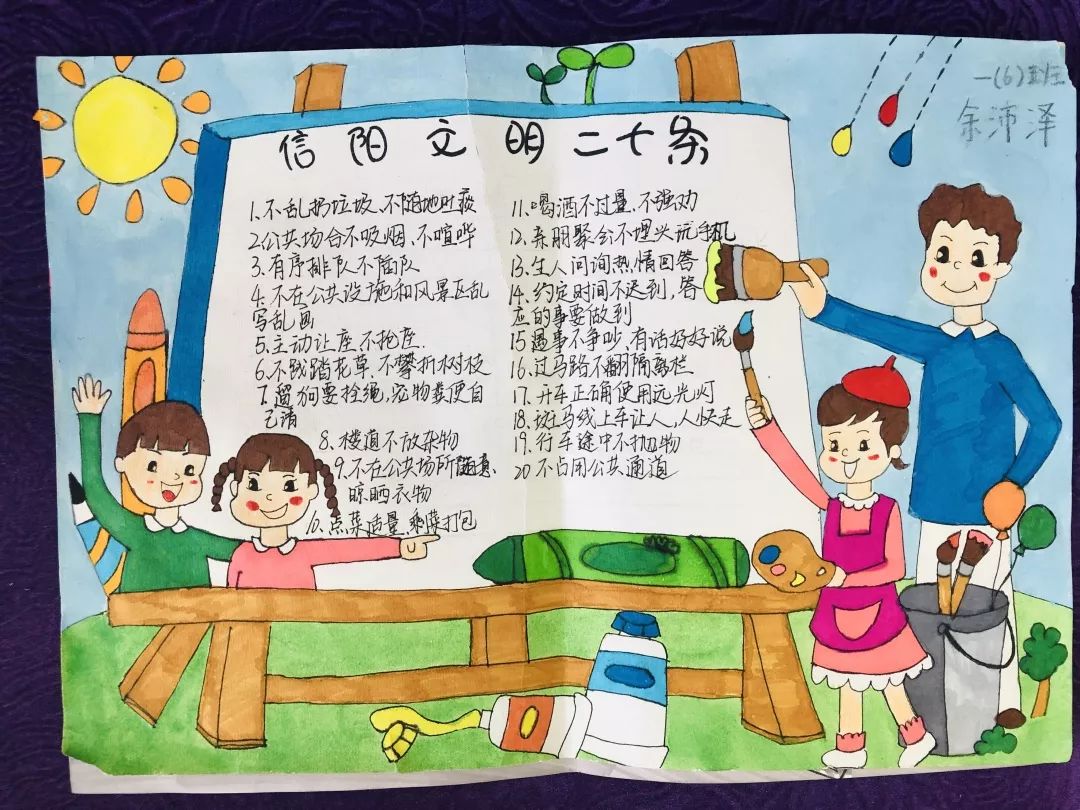 一(6)班
余沛泽
信阳文明二十条
1.不乱扔垃圾、不随地吐痰
2.公共场合不吸烟、不喧哗
3.有序排队不插队
4.不在公共设施和风景区乱
写乱画
5.主动让座、不抢座.
6.不践踏花草、不攀折树枝
7.遛狗要拴绳,宠物粪便自
己清
8.楼道不放杂物
9.不在公共场所随意
晾晒衣物
10.点菜适量,剩菜打包
11.喝酒不过量、不强劝
12.亲朋聚会不埋头玩手机
13.生人问询热情回答
14.约定时间不迟到,答
应的事要做到
15遇事不争吵,有话好好说
16.过马路不翻隔离栏
17.开车正确使用远光灯
18.斑马线上车让人,人快走
19.行车途中不抛物
20不占用公共通道